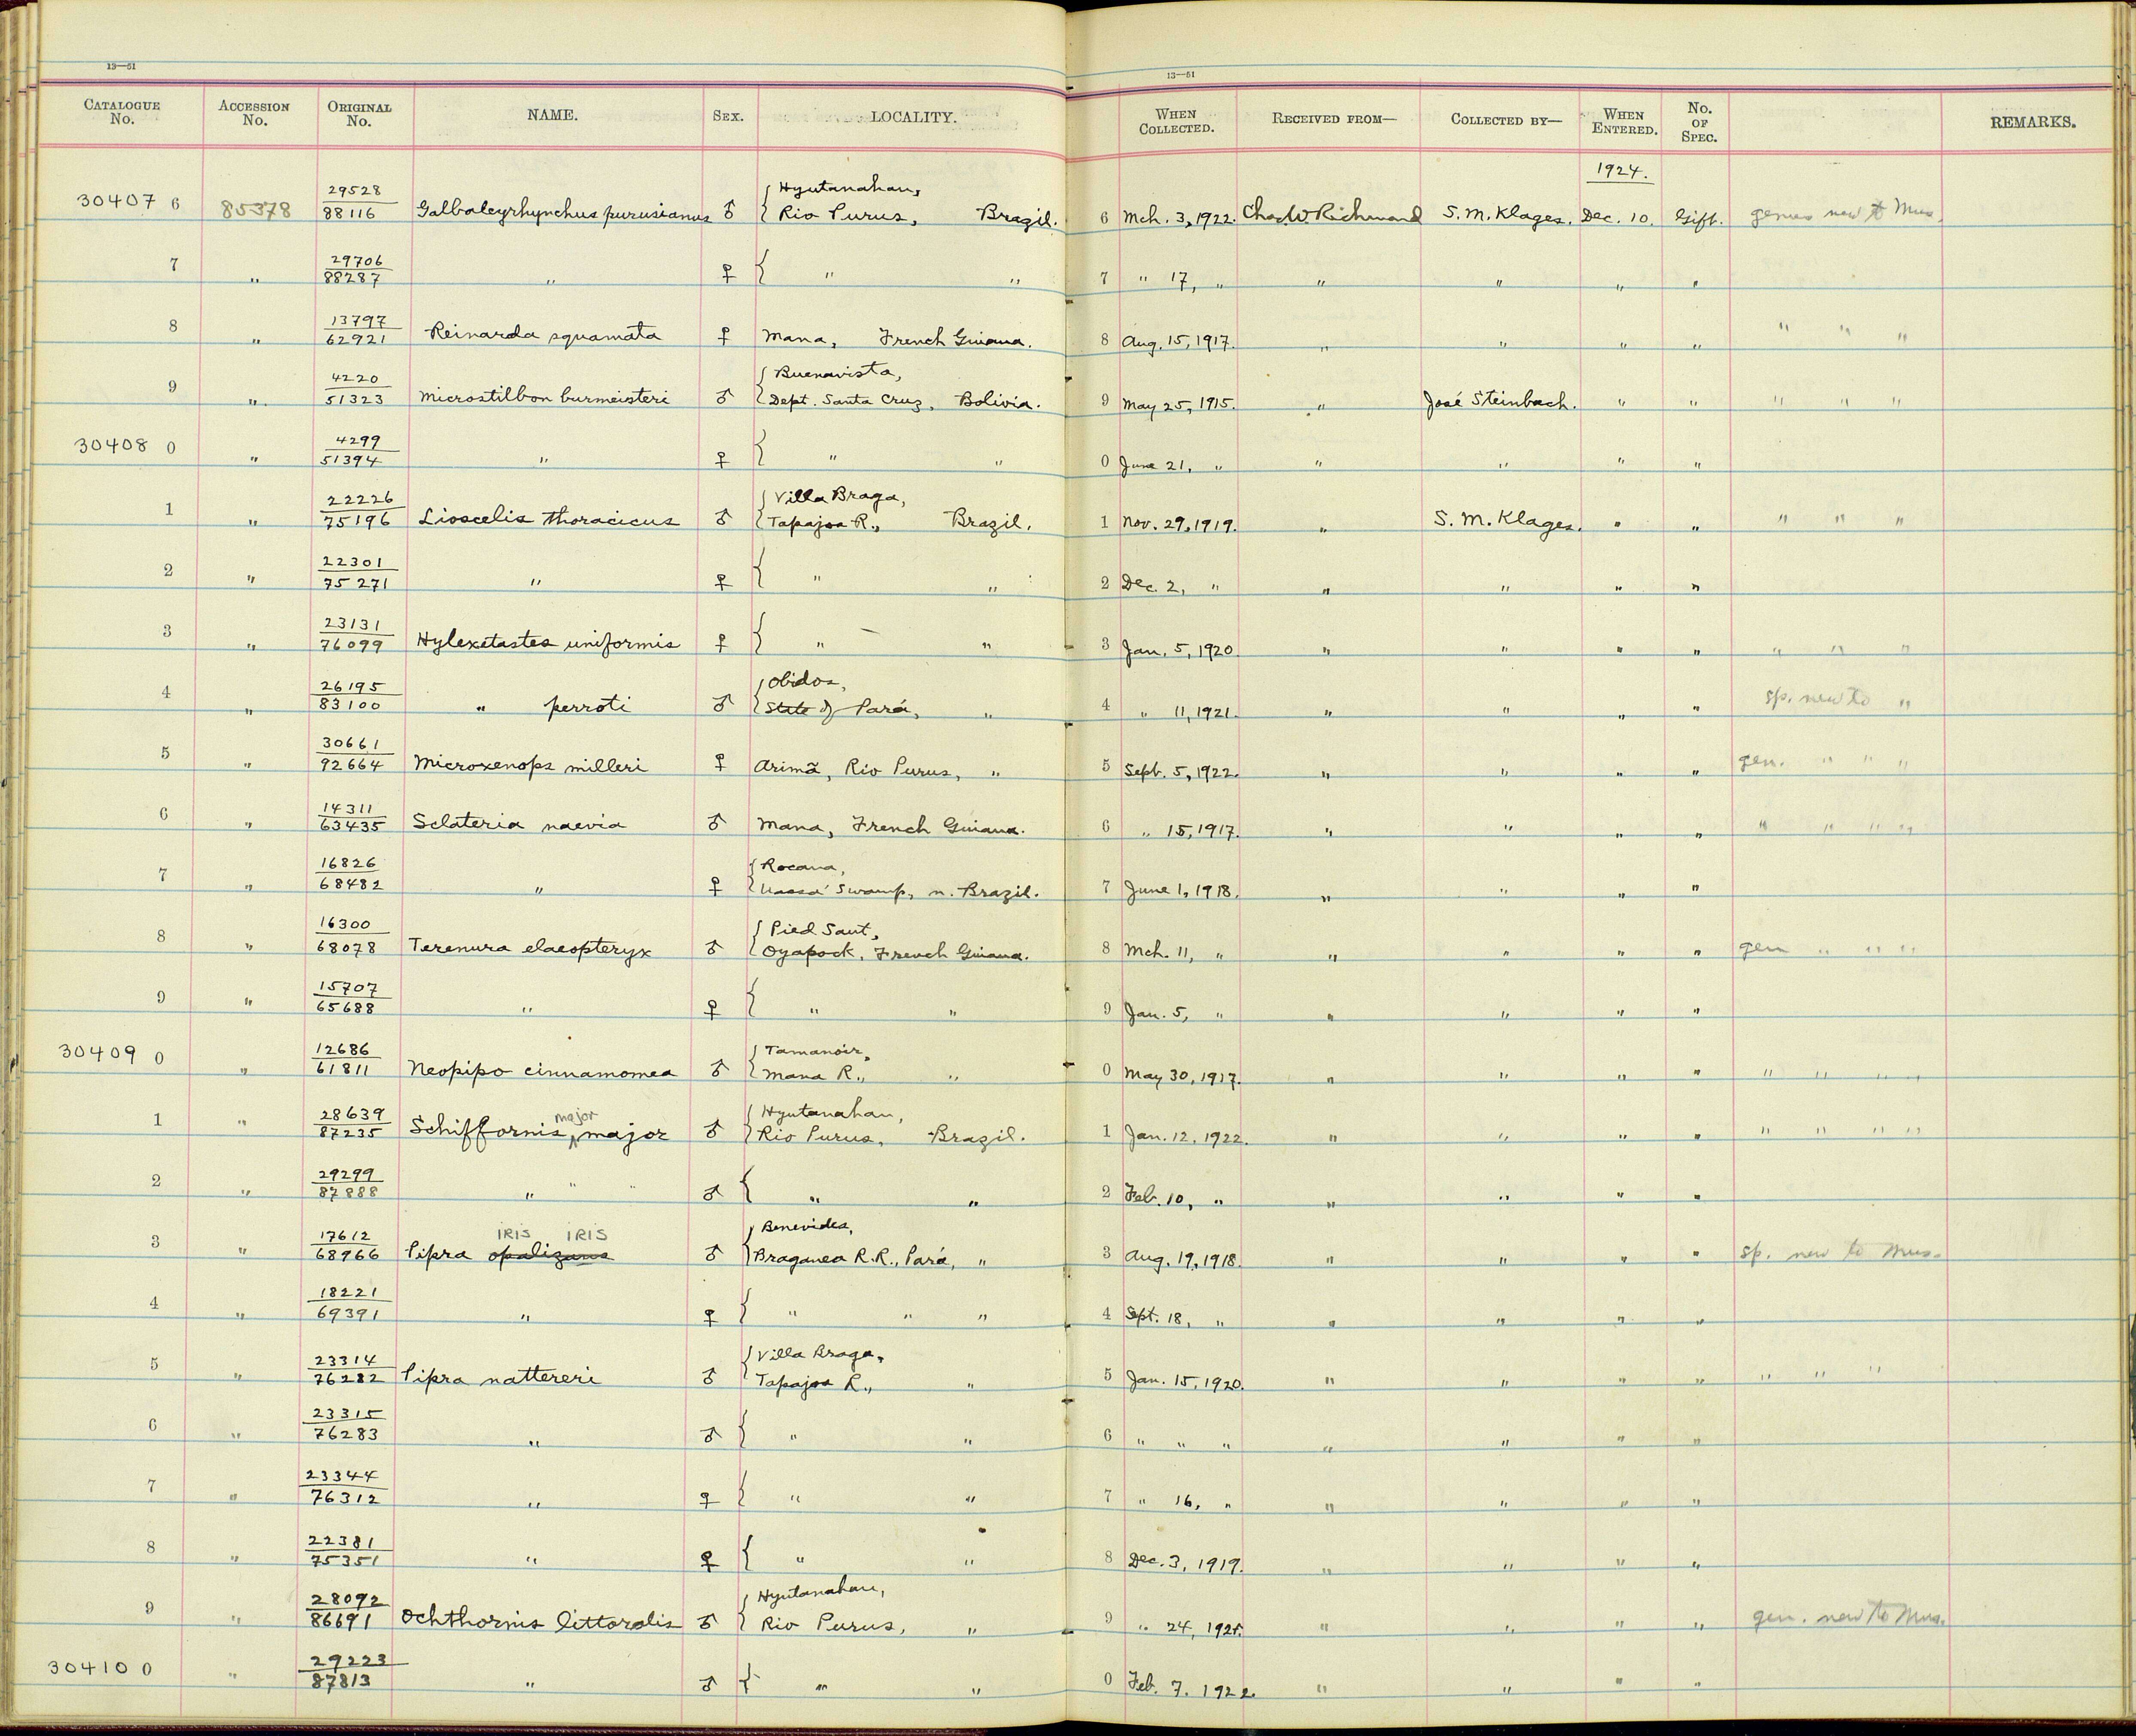 13—51
13—51
CATALOGUE No. ACCESSION No. ORIGINAL No. NAME. SEX. LOCALITY. WHEN COLLECTED. RECEIVED FROM— COLLECTED BY— WHEN ENTERED. No. OF SPEC. REMARKS.
1924.
29528 Hyutanahan,
30407 6 85378 88116 Galbalcyrhynchus purusianus ♂ { Rio Purus, Brazil. 6 Mch. 3, 1922. Chas. W. Richmond S. M. Klages. Dec. 10. Gift. genus new to Mus.
29706
7 " 88287 " ♀ { " " 7 " 17, " " " " "
13797
8 " 62921 Reinarda squamata ♀ Mana, French Guiana. 8 Aug. 15, 1917. " " " " " " "
4220 Buenavista,
9 " 51323 Microstilbon burmeisteri ♂ { Dept. Santa Cruz, Bolivia. 9 May 25, 1915. " José Steinbach. " " " " "
4299
30408 0 " 51394 " ♀ { " " 0 June 21, " " " " "
22226 Villa Braga,
1 " 75196 Lioscelis thoracicus ♂ { Tapajos R., Brazil. 1 Nov. 29, 1919. " S. M. Klages. " " " " "
22301
2 " 75271 " ♀ { " " 2 Dec. 2, " " " " "
23131
3 " 76099 Hylexetastes uniformis ♀ { " " 3 Jan. 5, 1920. " " " " " " "
26195 Obidos,
4 " 83100 " perroti ♂ { State of Pará, " 4 " 11, 1921. " " " " sp. new to "
30661
5 " 92664 Microxenops milleri ♀ Arimã, Rio Purus, " 5 Sept. 5, 1922. " " " " gen. " " "
14311
6 " 63435 Sclateria naevia ♂ Mana, French Guiana. 6 " 15, 1917. " " " " " " " "
16826 Rocana,
7 " 68482 " ♀ { Uassá Swamp, n. Brazil. 7 June 1, 1918. " " " "
16300 Pied Saut,
8 " 68078 Terenura elaeopteryx ♂ { Oyapock, French Guiana. 8 Mch. 11, " " " " " gen " " "
15707
9 " 65688 " ♀ { " " 9 Jan. 5, " " " " "
12686 Tamanoir,
30409 0 " 61811 Neopipo cinnamomea ♂ { Mana R., " 0 May 30, 1917. " " " " " " " "
28639 major Hyutanahan,
1 " 87235 Schiffornis major ♂ { Rio Purus, Brazil. 1 Jan. 12, 1922. " " " " " " " "
29299
2 " 87888 " " " ♂ { " " 2 Feb. 10, " " " " "
17612 IRIS IRIS Benevides,
3 " 68966 Pipra opalizans ♂ { Braganca R.R., Pará, " 3 Aug. 19, 1918. " " " " sp. new to Mus.
18221
4 " 69391 " ♀ { " " " 4 Sept. 18, " " " " "
23314 Villa Braga,
5 " 76282 Pipra nattereri ♂ { Tapajos R., " 5 Jan. 15, 1920. " " " " " " "
23315
6 " 76283 " ♂ { " " 6 " " " " " " "
23344
7 " 76312 " ♀ { " " 7 " 16, " " " " "
22381
8 " 75351 " ♀ { " " 8 Dec. 3, 1919. " " " "
28092 Hyutanahan,
9 " 86691 Ochthornis littoralis ♂ { Rio Purus, " 9 " 24, 1921. " " " " gen. new to Mus.
29223
30410 0 " 87813 " ♂ { " " 0 Feb. 7. 1922. " " " "